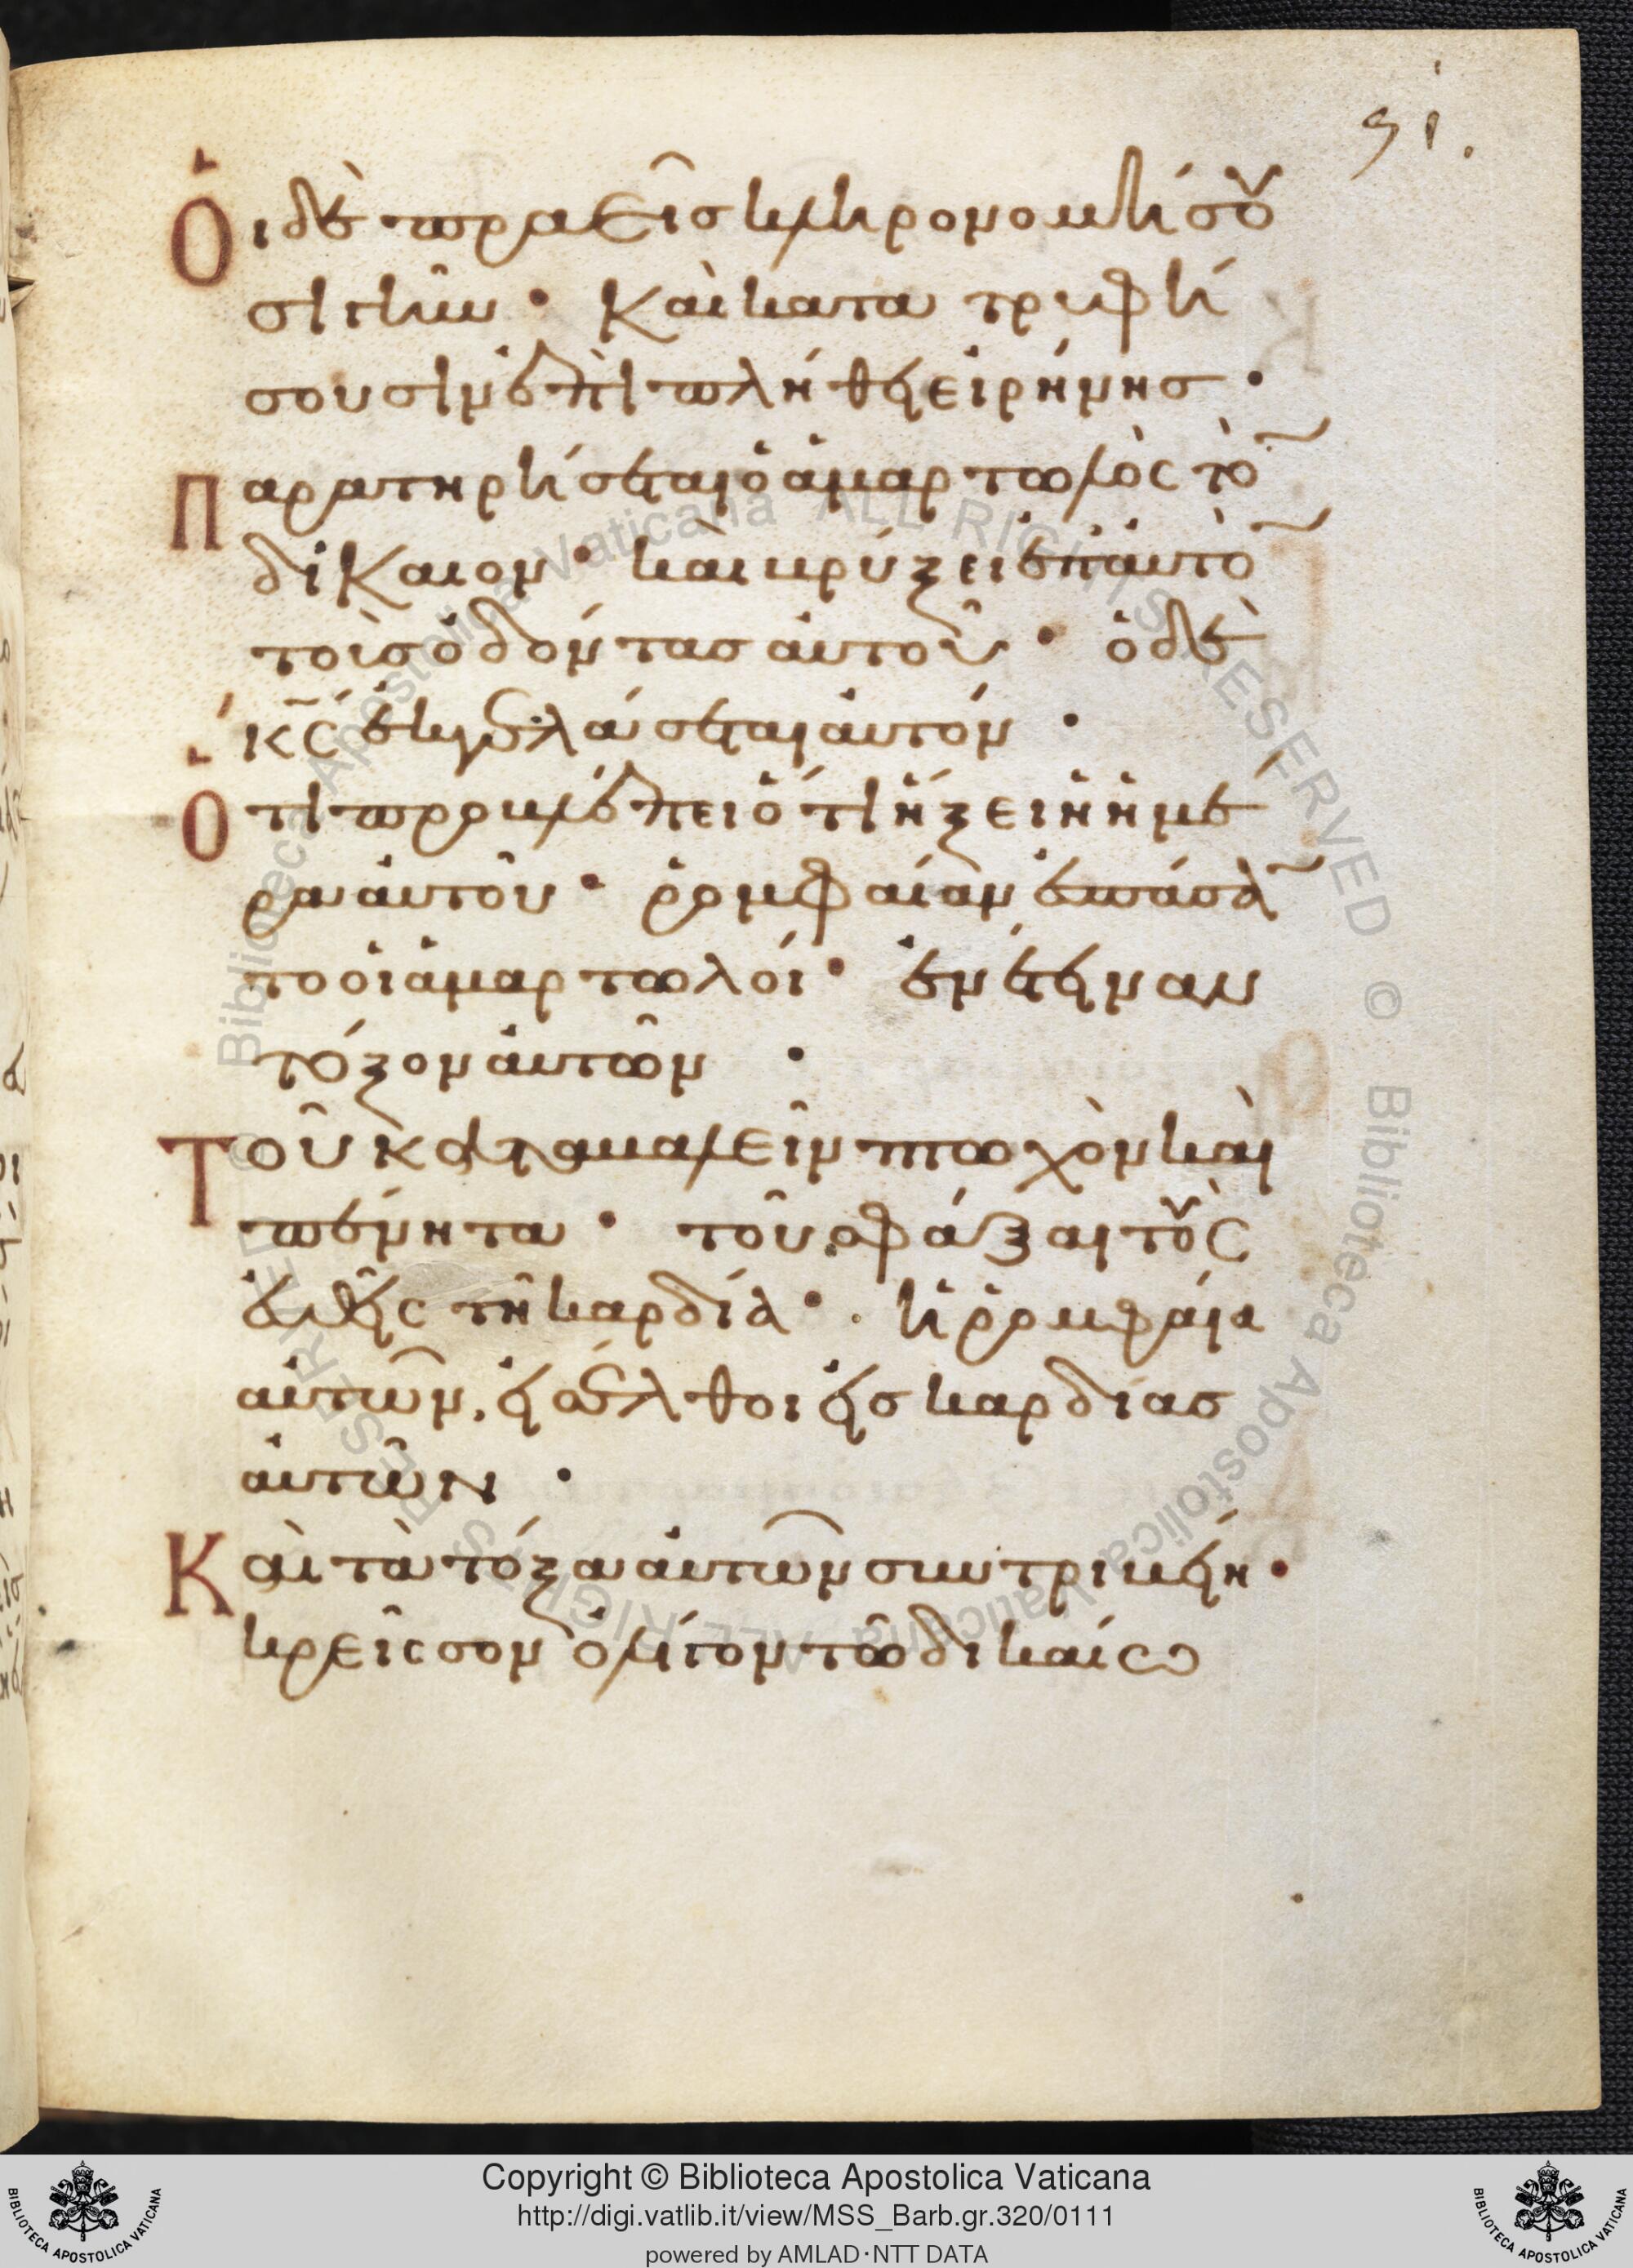 51.
Ὁι δὲ πραεῖσ κληρονομήσου
σι γῆν · Και κατατρυφή
σουσιν ἐπὶ πλήθει εἰρήνησ ·
Παρατηρήσεται ὁ ἁμαρτωλὸς τὸ̃
δίκαιον · και βρύξει ἐπ' αυτὸ̃
τοὺσ ὀδόντασ αὐτοῦ · ὁ δὲ
κ̅ς̅ ἐκγελάσεται αὐτόν ·
Ὅτι προβλέπει ὅτι ἥξει ἡ ἡμέ
ρα αὐτοῦ · ῥομφαίαν ἐσπάσα̃
το οἱ ἁμαρτωλοί · ἐνέτειναν
τόξον αὐτῶν ·
Τοῦ καταβαλεῖν πτωχὸν και
πένητα · τοῦ σφάξαι τοὺς
εὐθεῖς τῆ καρδία · ἡ ῥομφαία
αὐτῶν, εἰσέλθοι εἰσ καρδίασ
αὐτῶν ·
Και τὰ τόξα αὐτῶν συντριβείη ·
κρεῖσσον ὀλίγον τῶ δικαίω
Copyright © Biblioteca Apostolica Vaticana
http://digi.vatlib.it/view/MSS_Barb.gr.320/0111
powered by AMLAD·NTT DATA
BIBLIOTECA APOSTOLICA VATICANA
BIBLIOTECA APOSTOLICA VATICANA
© Biblioteca Apostolica Vaticana ALL RIGHTS RESERVED © Biblioteca Apostolica Vaticana ALL RIGHTS RESERVED